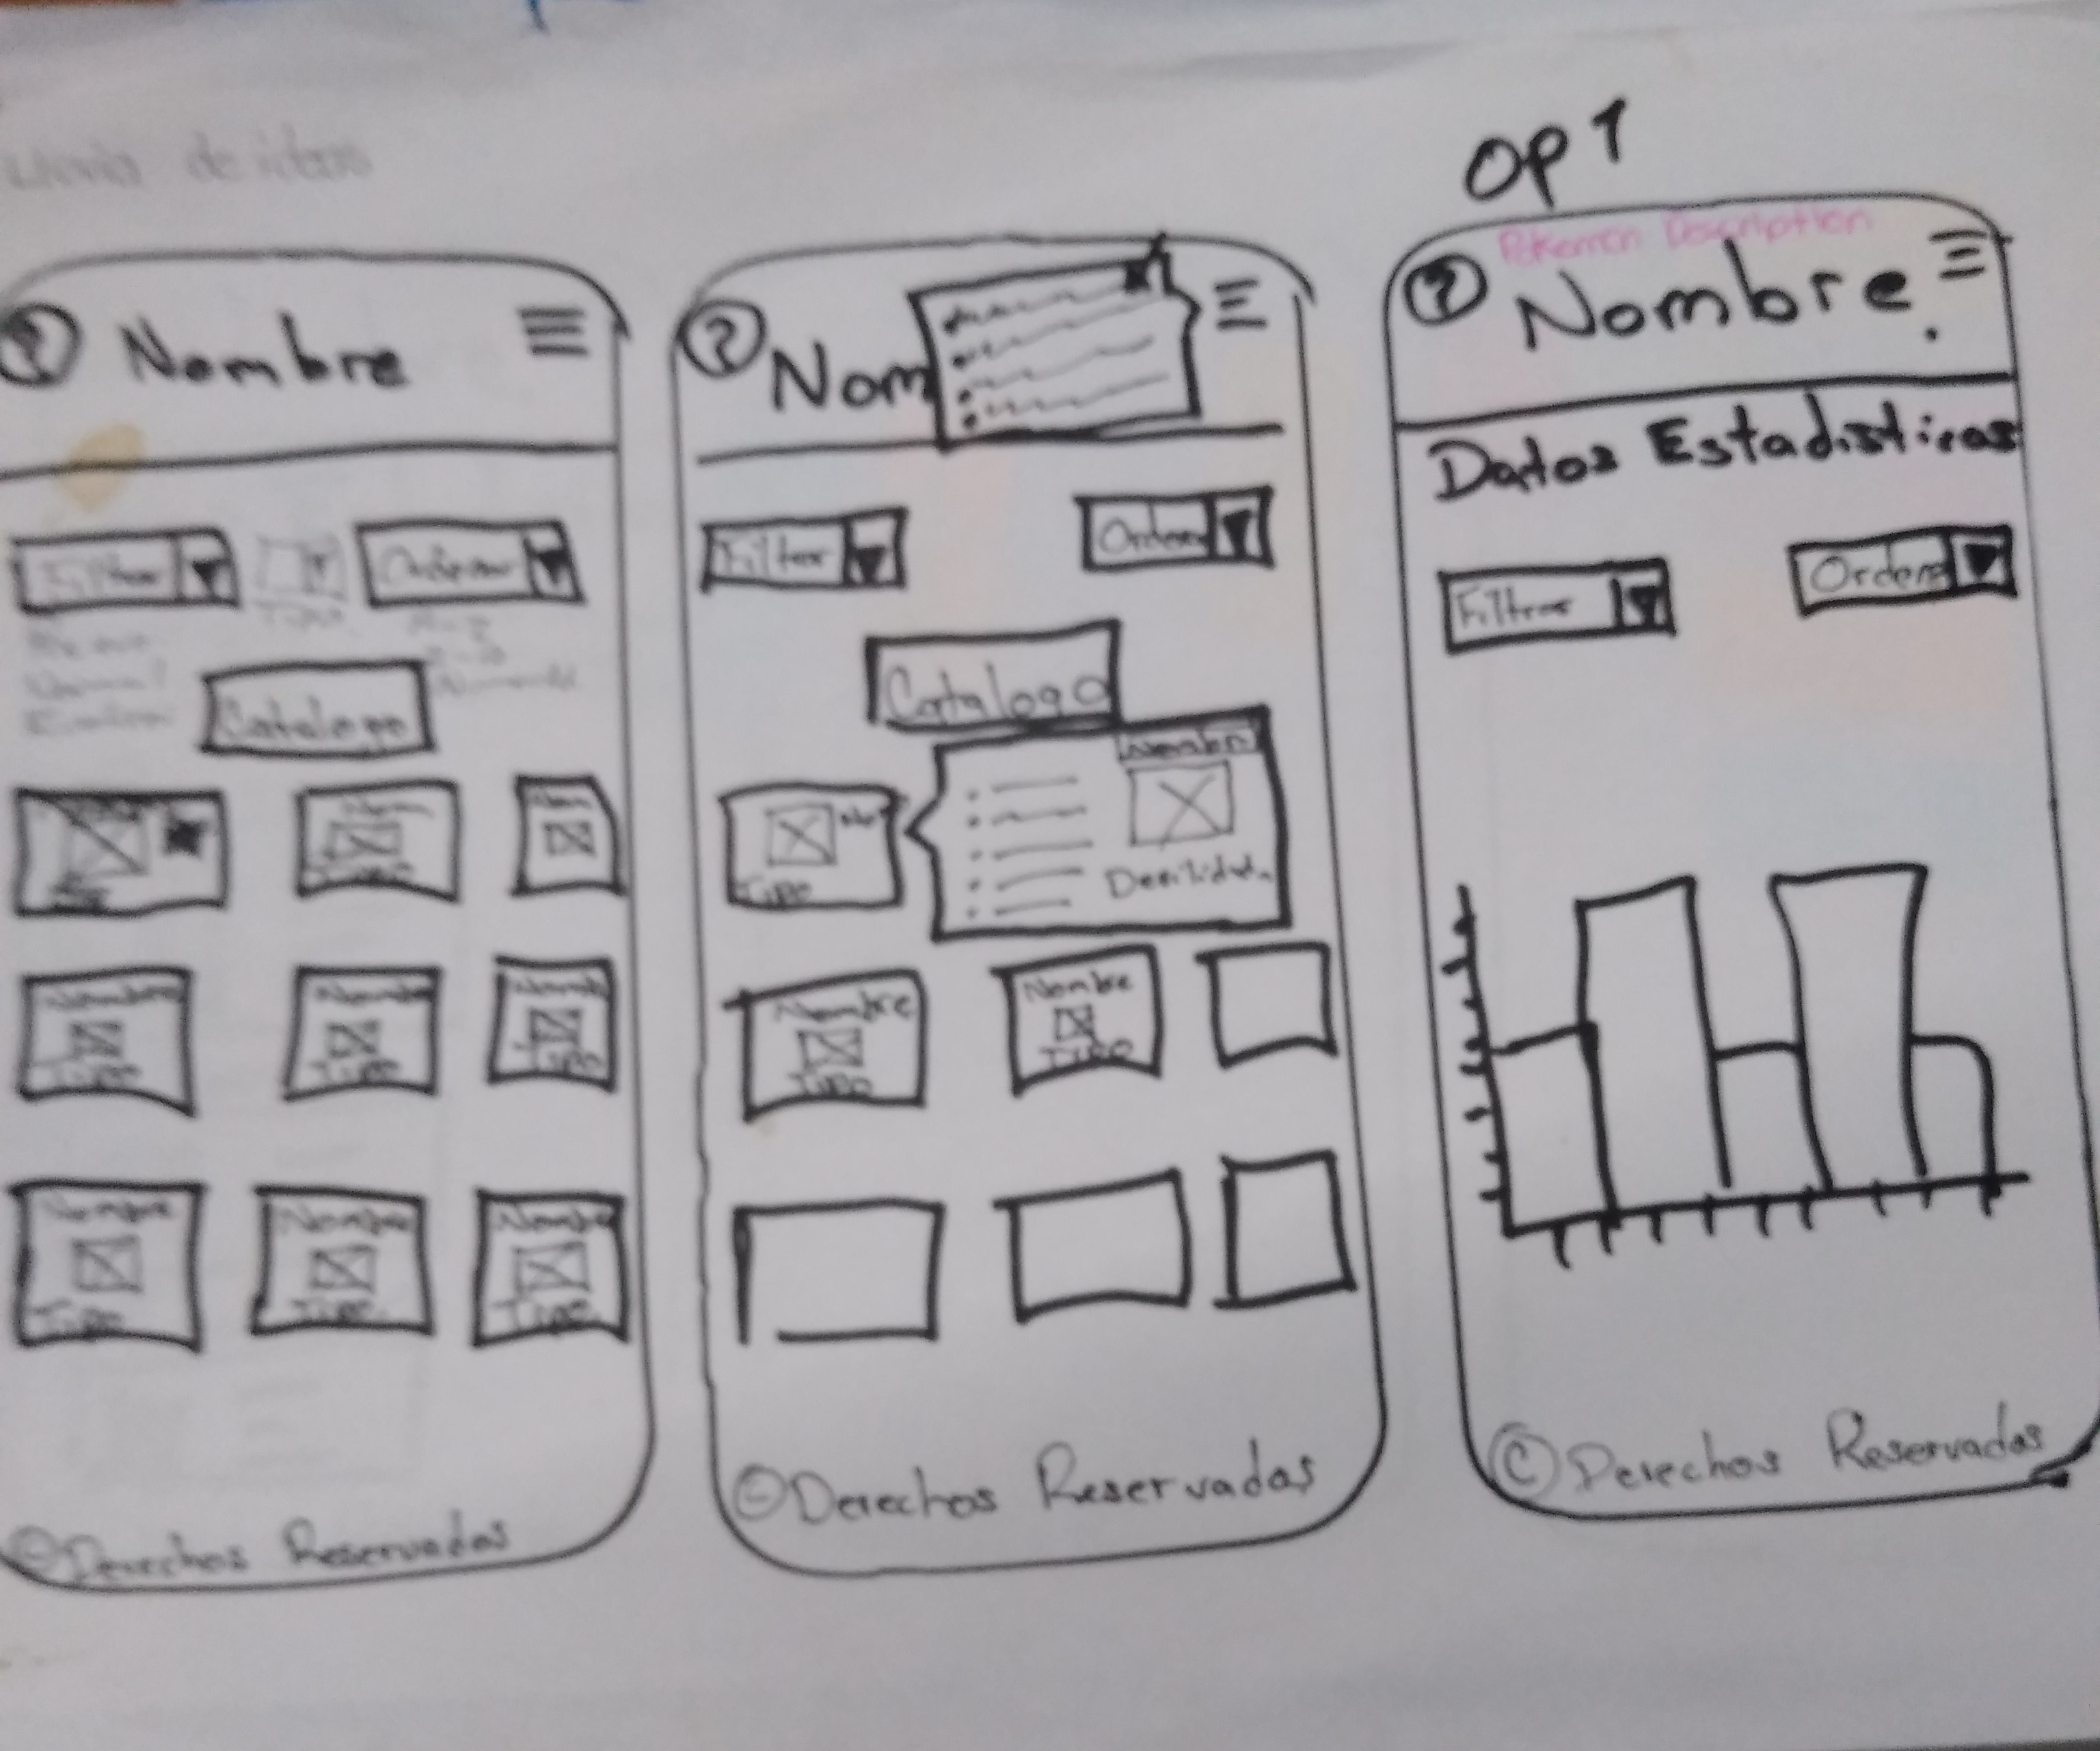 de ideas
OP 1
Nombre
Filtrar
Ordenar
Catalogo
Nombre
Tipo
Nombre
Tipo
Nombre
Tipo
Nombre
Tipo
Nombre
Tipo
Nombre
Tipo
Derechos Reservados
? Nom
Filtrar
Orden
Catalogo
Nombre
Tipo
Nombre
Tipo
Nombre
Tipo
Derechos Reservados
Pokemon Description
? Nombre
Datos Estadisticos
Filtrar
Orden
© Derechos Reservados